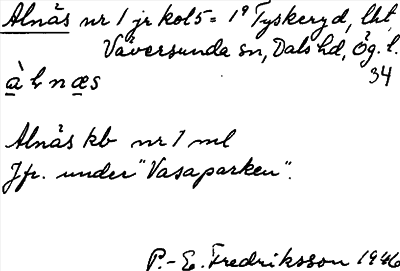 Alnäs nr 1 jr kol 5 = 19 Tyskeryd, lht,
Väversunda sn, Dals hd, Ög. l.
àlnæs 34
Alnäs kb nr 1 ml
Jfr. under "Vasaparken".
P.-E. Fredriksson 1946